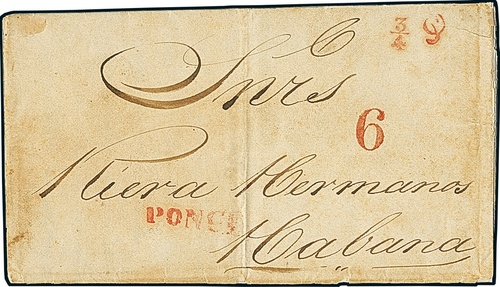 3/4 9
Snrs
6
Riera Hermanos
PONCE
Habana